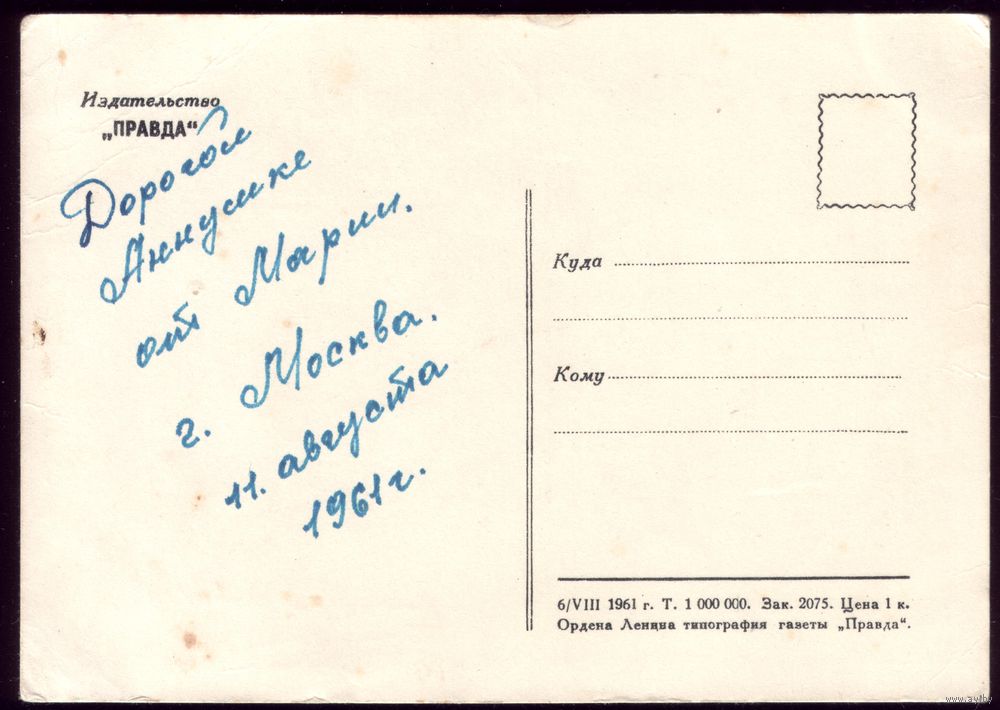 Издательство
„ПРАВДА“
Дорогой
Аннушке
от Марии.
г. Москва.
11. августа
1961 г.
Куда
Кому
6/VIII 1961 г. Т. 1 000 000. Зак. 2075. Цена 1 к.
Ордена Ленина типография газеты „Правда“.